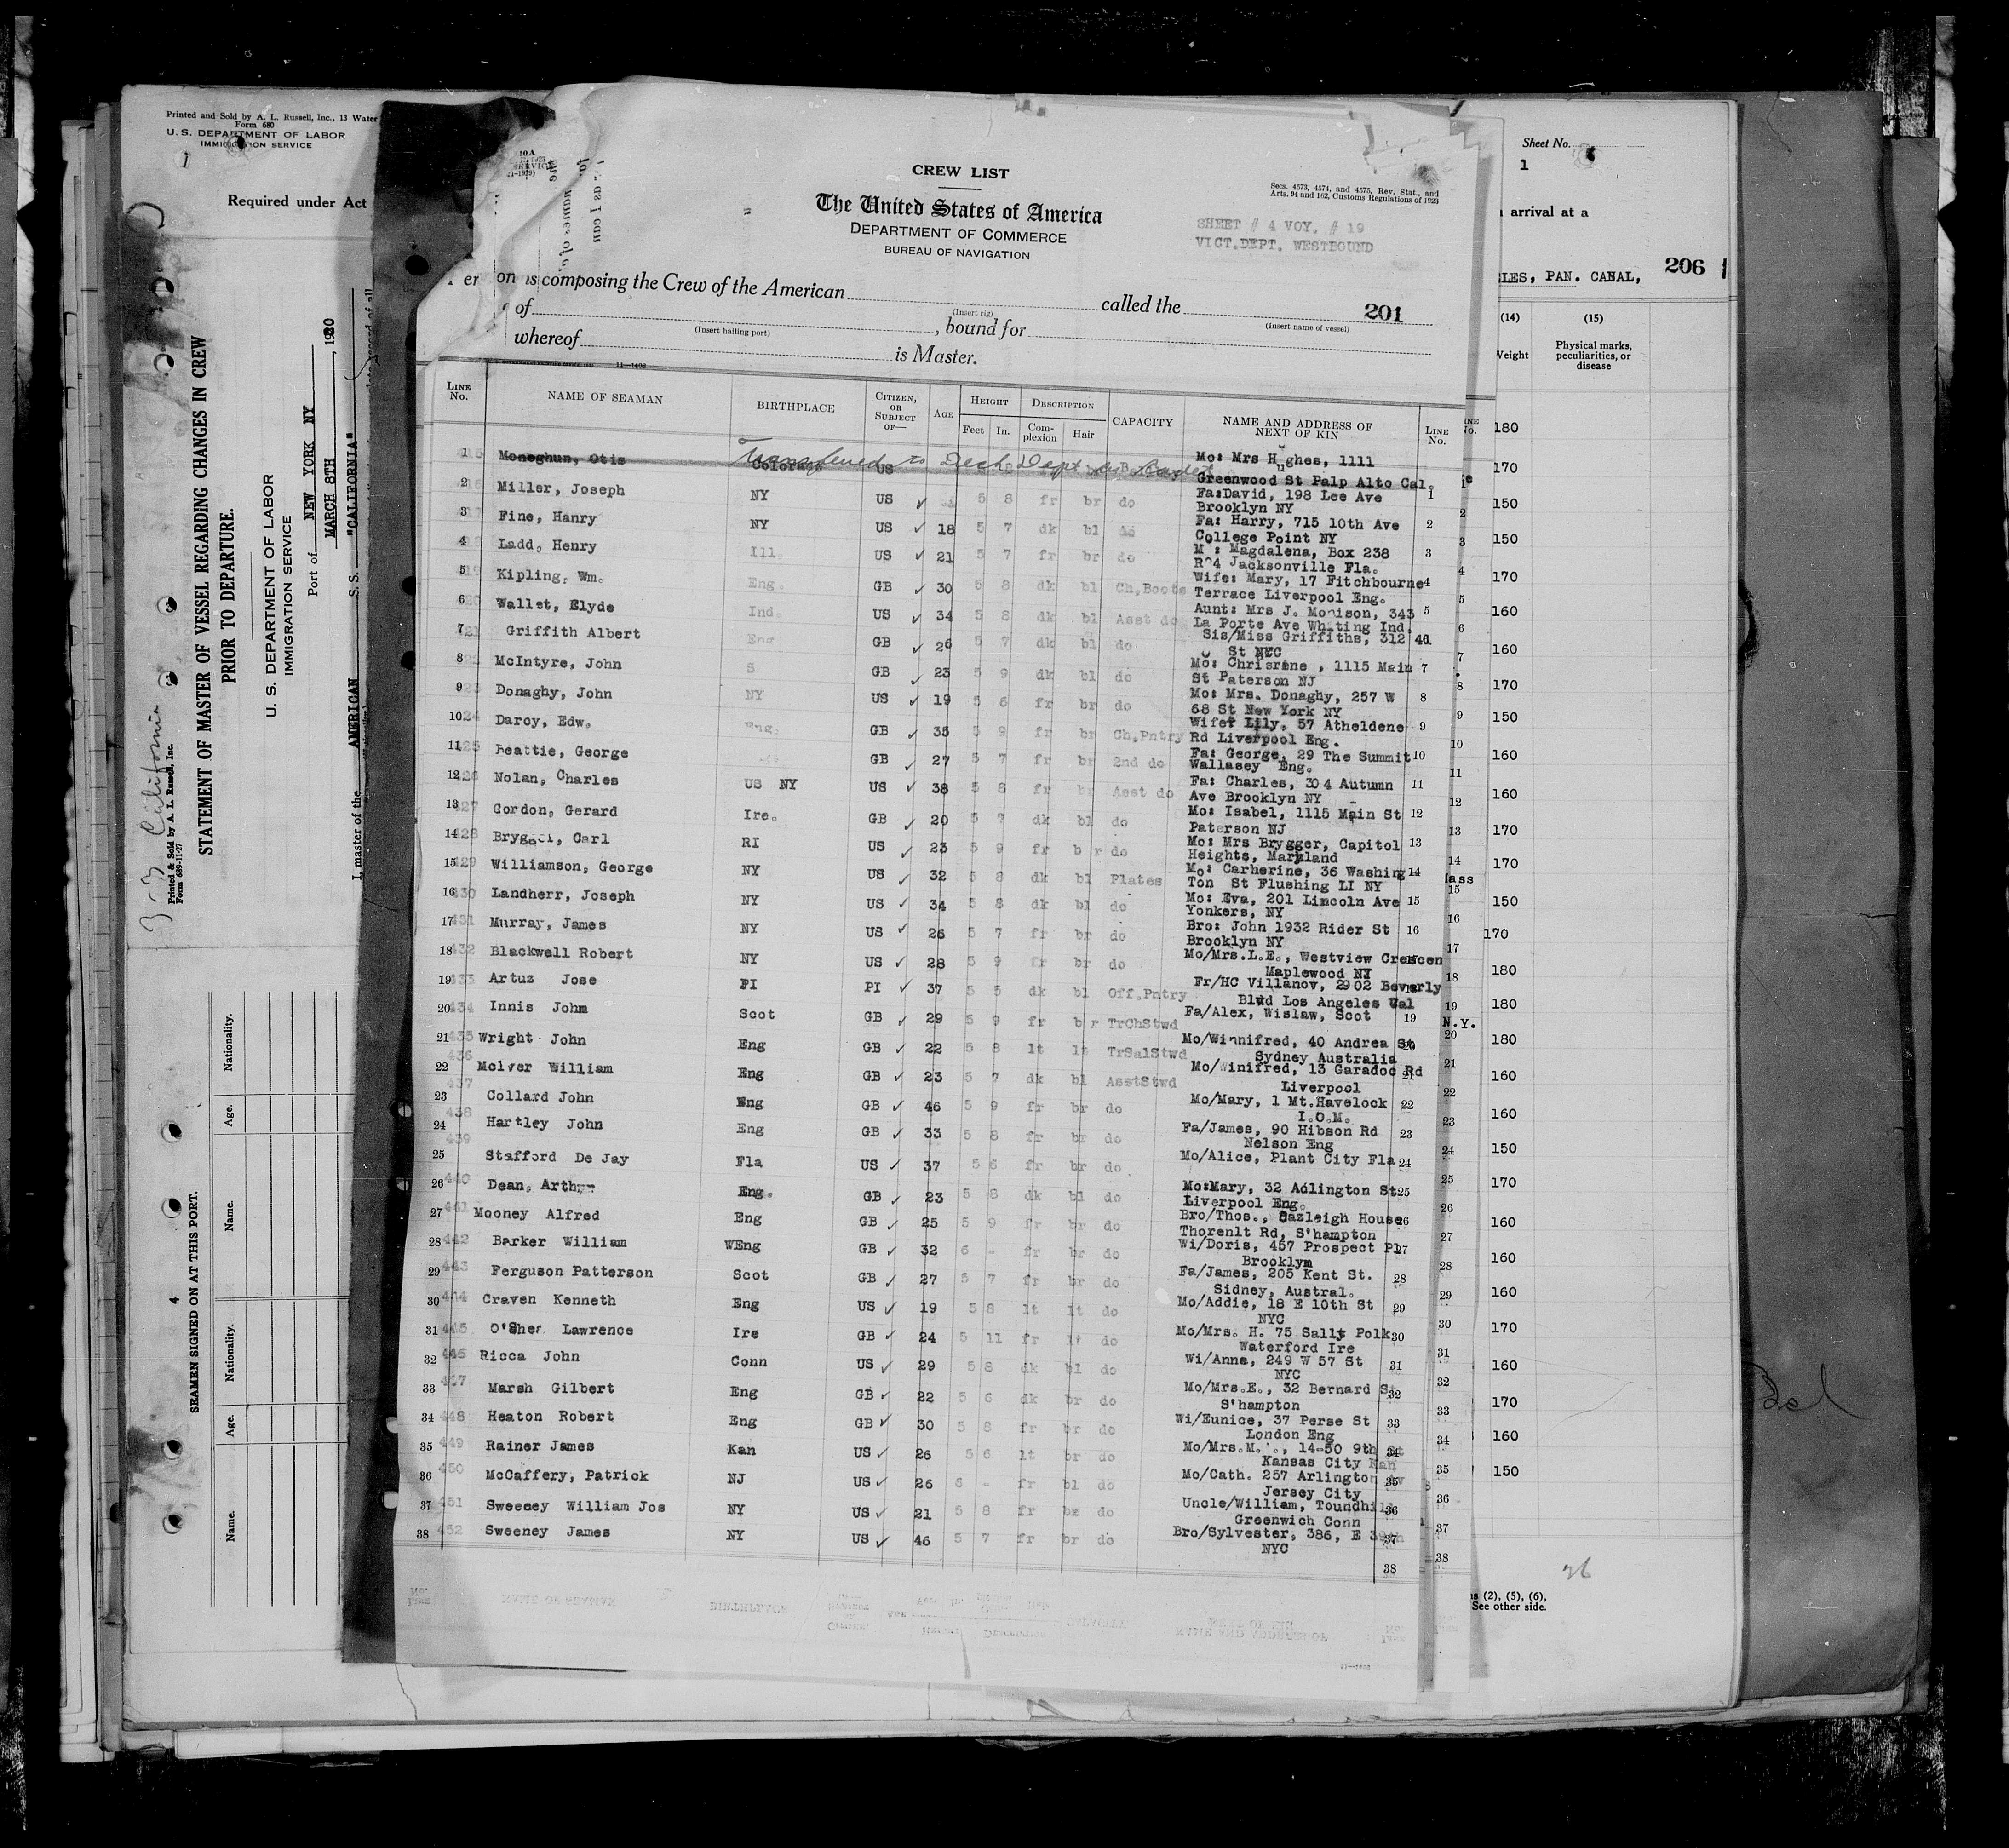 Printed and Sold by A. L. Russell, Inc., 13 Water
Form 680
U. S. DEPARTMENT OF LABOR
IMMIGRATION SERVICE
Required under Act
Printed & Sold by A. L. Russell, Inc.
Form 689-11-27
STATEMENT OF MASTER OF VESSEL REGARDING CHANGES IN CREW
PRIOR TO DEPARTURE.
U. S. DEPARTMENT OF LABOR
IMMIGRATION SERVICE
Port of NEW YORK NY
MARCH 8TH, 1930
I, master of the AMERICAN S. S. "CALIFORNIA"
4 SEAMEN SIGNED ON AT THIS PORT.
Name. Age. Nationality. Name. Age. Nationality.
CREW LIST
The United States of America
DEPARTMENT OF COMMERCE
BUREAU OF NAVIGATION
Secs. 4573, 4574, and 4575, Rev. Stat., and
Arts. 94 and 162, Customs Regulations of 1923
SHEET # 4 VOY. # 19
VICT.DEPT. WESTBOUND
composing the Crew of the American called the 201
(Insert rig) (Insert name of vessel)
of , bound for
(Insert hailing port)
whereof is Master.
11—1408
LINE No. NAME OF SEAMAN BIRTHPLACE CITIZEN, OR SUBJECT OF— AGE HEIGHT Feet In. DESCRIPTION Complexion Hair CAPACITY NAME AND ADDRESS OF NEXT OF KIN LINE No.
1 Moneghun, Otis Colorado US Transferred to Deck Dept Mo: Mrs Hughes, 1111
Greenwood St Palp Alto Cal.
2 Miller, Joseph NY US 5 8 fr br do Fa:David, 198 Lee Ave 1
Brooklyn NY
3 Fine, Hanry NY US 18 5 7 dk bl do Fa: Harry, 715 10th Ave 2
College Point NY
4 Ladd, Henry Ill. US 21 5 7 fr br do M : Magdalena, Box 238 3
R^4 Jacksonville Fla.
5 Kipling, Wm. Eng. GB 30 5 8 dk bl Ch,Boots Wife: Mary, 17 Fitchbourne 4
Terrace Liverpool Eng.
6 Wallet, Elyde Ind. US 34 5 8 dk bl Asst do Aunt: Mrs J. Monison, 343 5
La Porte Ave Whiting Ind.
7 Griffith Albert Eng GB 26 5 7 dk bl do Sis/Miss Griffiths, 312 4d
St NYC
8 McIntyre, John S GB 23 5 9 dk bl do Mo: Chrisrine , 1115 Main 7
St Paterson NJ
9 Donaghy, John NY US 19 5 6 fr br do Mo: Mrs. Donaghy, 257 W 8
68 St New York NY
10 Darcy, Edw. Eng. GB 35 5 9 fr br Ch,Pntry Wife: Lily, 57 Atheldene 9
Rd Liverpool Eng.
11 Beattie, George GB 27 5 7 fr br 2nd do Fa: George, 29 The Summit 10
Wallasey Eng.
12 Nolan, Charles US NY US 38 5 8 fr br Asst do Fa: Charles, 304 Autumn 11
Ave Brooklyn NY
13 Gordon, Gerard Ire. GB 20 5 7 dk bl do Mo: Isabel, 1115 Main St 12
Paterson NJ
14 Brygger, Carl RI US 23 5 9 fr br do Mo: Mrs Brygger, Capitol 13
Heights, Maryland
15 Williamson, George NY US 32 5 8 dk bl Plates Mo: Carherine, 36 Washing 14
Ton St Flushing LI NY
16 Landherr, Joseph NY US 34 5 8 dk bl do Mo: Eva, 201 Lincoln Ave 15
Yonkers, NY
17 Murray, James NY US 26 5 7 fr br do Bro: John 1932 Rider St 16
Brooklyn NY
18 Blackwell Robert NY US 28 5 9 fr br do Mo/Mrs.L.E., Westview Crescen
Maplewood NJ
19 Artuz Jose PI PI 37 5 5 dk bl Off.Pntry Fr/HC Villanov, 2902 Beverly
Blvd Los Angeles Cal
20 Innis John Scot GB 29 5 9 fr br TrChStwd Fa/Alex, Wislaw, Scot 19
21 Wright John Eng GB 22 5 8 lt lt TrSalStwd Mo/Winnifred, 40 Andrea St
Sydney Australia
22 McIver William Eng GB 23 5 7 dk bl AsstStwd Mo/Winifred, 13 Garadoc Rd
Liverpool
23 Collard John Eng GB 46 5 9 fr br do Mo/Mary, 1 Mt.Havelock 22
I.O.M.
24 Hartley John Eng GB 33 5 8 fr br do Fa/James, 90 Hibson Rd 23
Nelson Eng
25 Stafford De Jay Fla US 37 5 6 fr br do Mo/Alice, Plant City Fla 24
26 Dean, Arthur Eng. GB 23 5 8 dk bl do Mo:Mary, 32 Adlington St 25
Liverpool Eng.
27 Mooney Alfred Eng GB 25 5 9 fr br do Bro/Thos., Oazleigh House 26
Thorenlt Rd, S'hampton
28 Barker William WEng GB 32 6 - fr br do Wi/Doris, 457 Prospect Pl 27
Brooklyn
29 Ferguson Patterson Scot GB 27 5 7 fr br do Fa/James, 205 Kent St. 28
Sidney, Austral.
30 Craven Kenneth Eng US 19 5 8 lt lt do Mo/Addie, 18 E 10th St 29
NYC
31 O'Shea Lawrence Ire GB 24 5 11 fr lt do Mo/Mrs. H. 75 Sally Polk 30
Waterford Ire
32 Ricca John Conn US 29 5 8 dk bl do Wi/Anna, 249 W 57 St 31
NYC
33 Marsh Gilbert Eng GB 22 5 6 dk br do Mo/Mrs.E., 32 Bernard St 32
S'hampton
34 Heaton Robert Eng GB 30 5 8 fr br do Wi/Eunice, 37 Perse St 33
London Eng
35 Rainer James Kan US 26 5 6 lt br do Mo/Mrs.M. ., 14-50 9th St
Kansas City Kan
36 McCaffery, Patrick NJ US 26 6 - fr bl do Mo/Cath. 257 Arlington Av
Jersey City
37 Sweeney William Jos NY US 21 5 8 fr br do Uncle/William, Toundhill 36
Greenwich Conn
38 Sweeney James NY US 46 5 7 fr br do Bro/Sylvester, 386, E 39th
NYC
38
Sheet No.
1
arrival at a
LES, PAN. CANAL, 206
(14) (15)
Weight Physical marks, peculiarities, or disease
180
170
150
150
170
160
160
170
150
160
160
170
170
150
170
180
180
180
160
160
150
170
160
160
160
170
160
170
160
150
26
(2), (5), (6),
See other side.